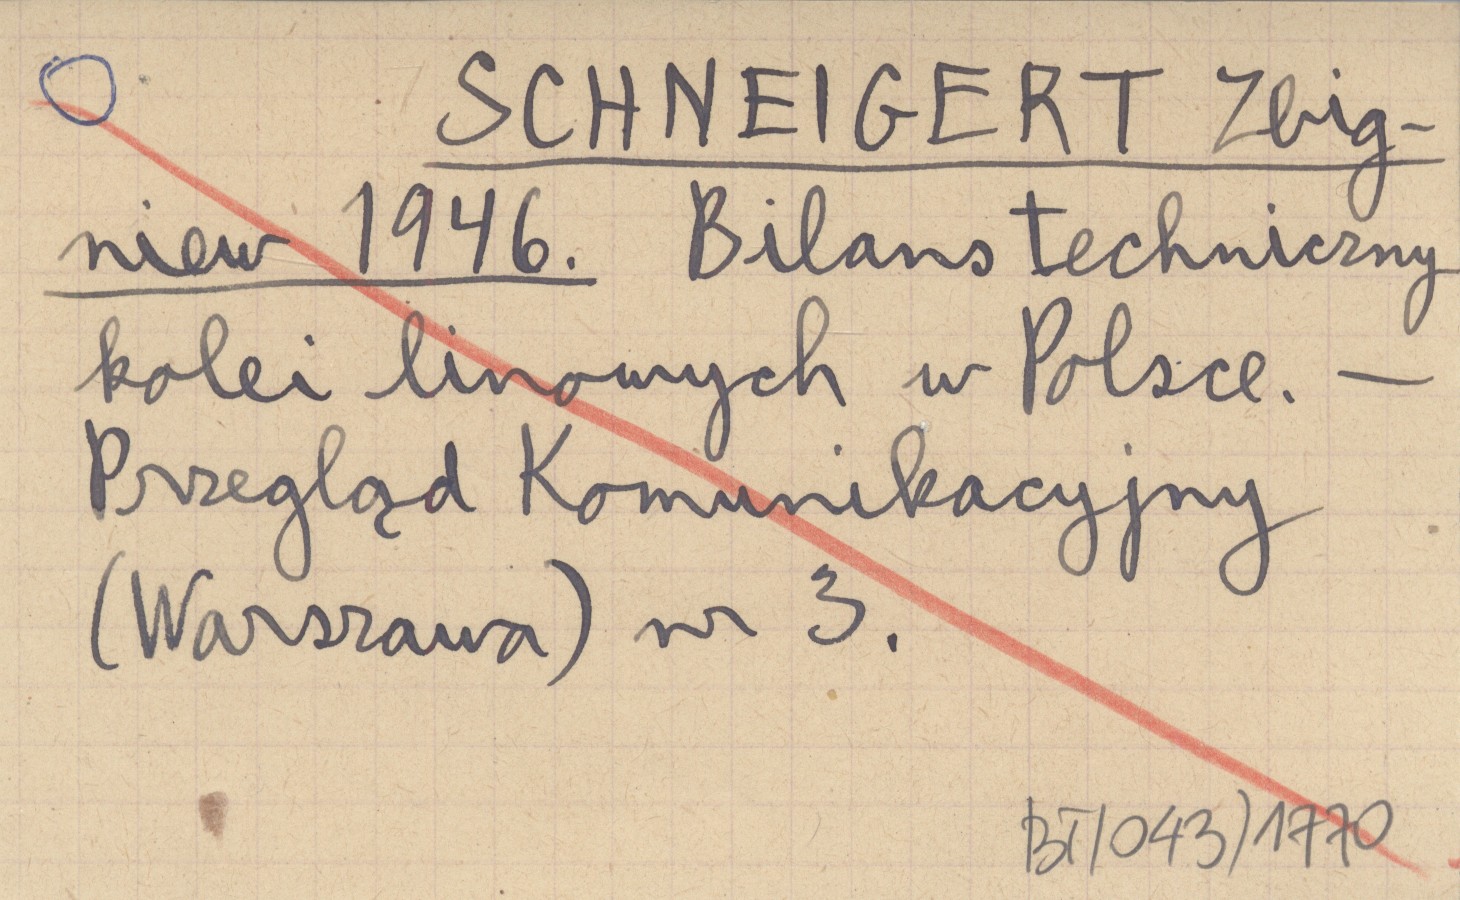 SCHNEIGERT Zbig-
niew 1946. Bilans techniczny
kolei linowych w Polsce. —
Przegląd Komunikacyjny
(Warszawa) nr 3.
BT/043/1770